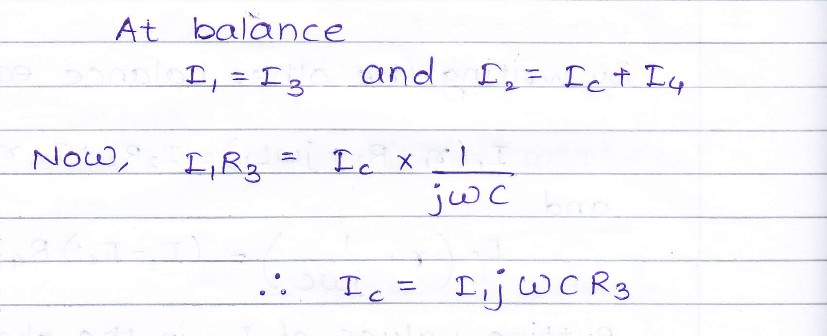 At balance
I₁ = I₃ and I₂ = I_c + I₄
Now, I₁R₃ = I_c × 1/jωC
∴ I_c = I₁jωCR₃